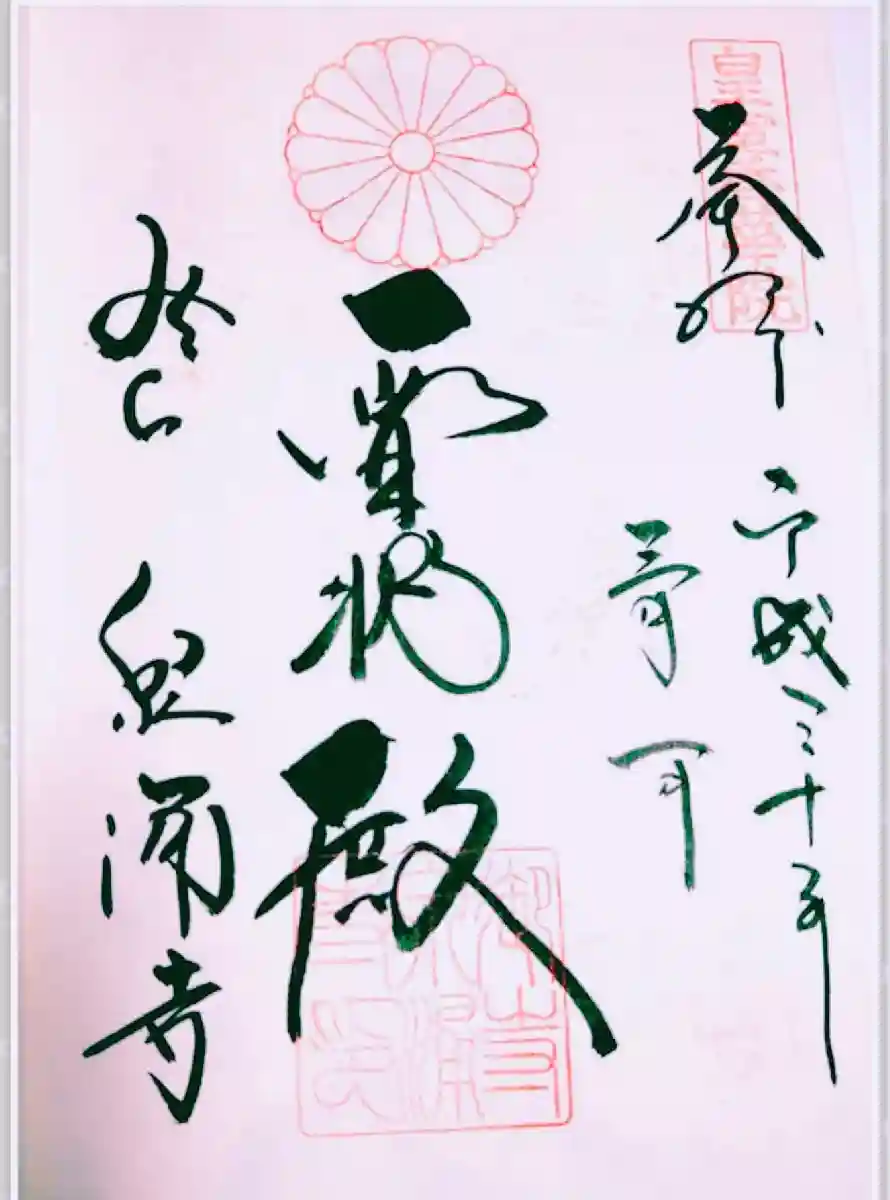 皇室香華院
奉拝 平成三十年
三月一日
霊明殿
みてら 泉涌寺
御寺
泉涌
寺